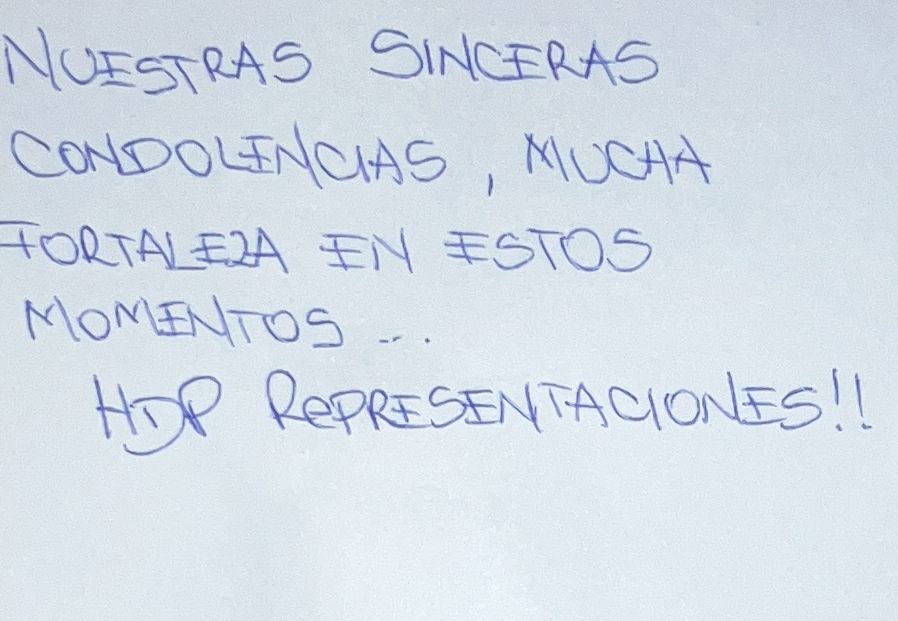 NUESTRAS SINCERAS
CONDOLENCIAS, MUCHA
FORTALEZA EN ESTOS
MOMENTOS...
HDP REPRESENTACIONES!!